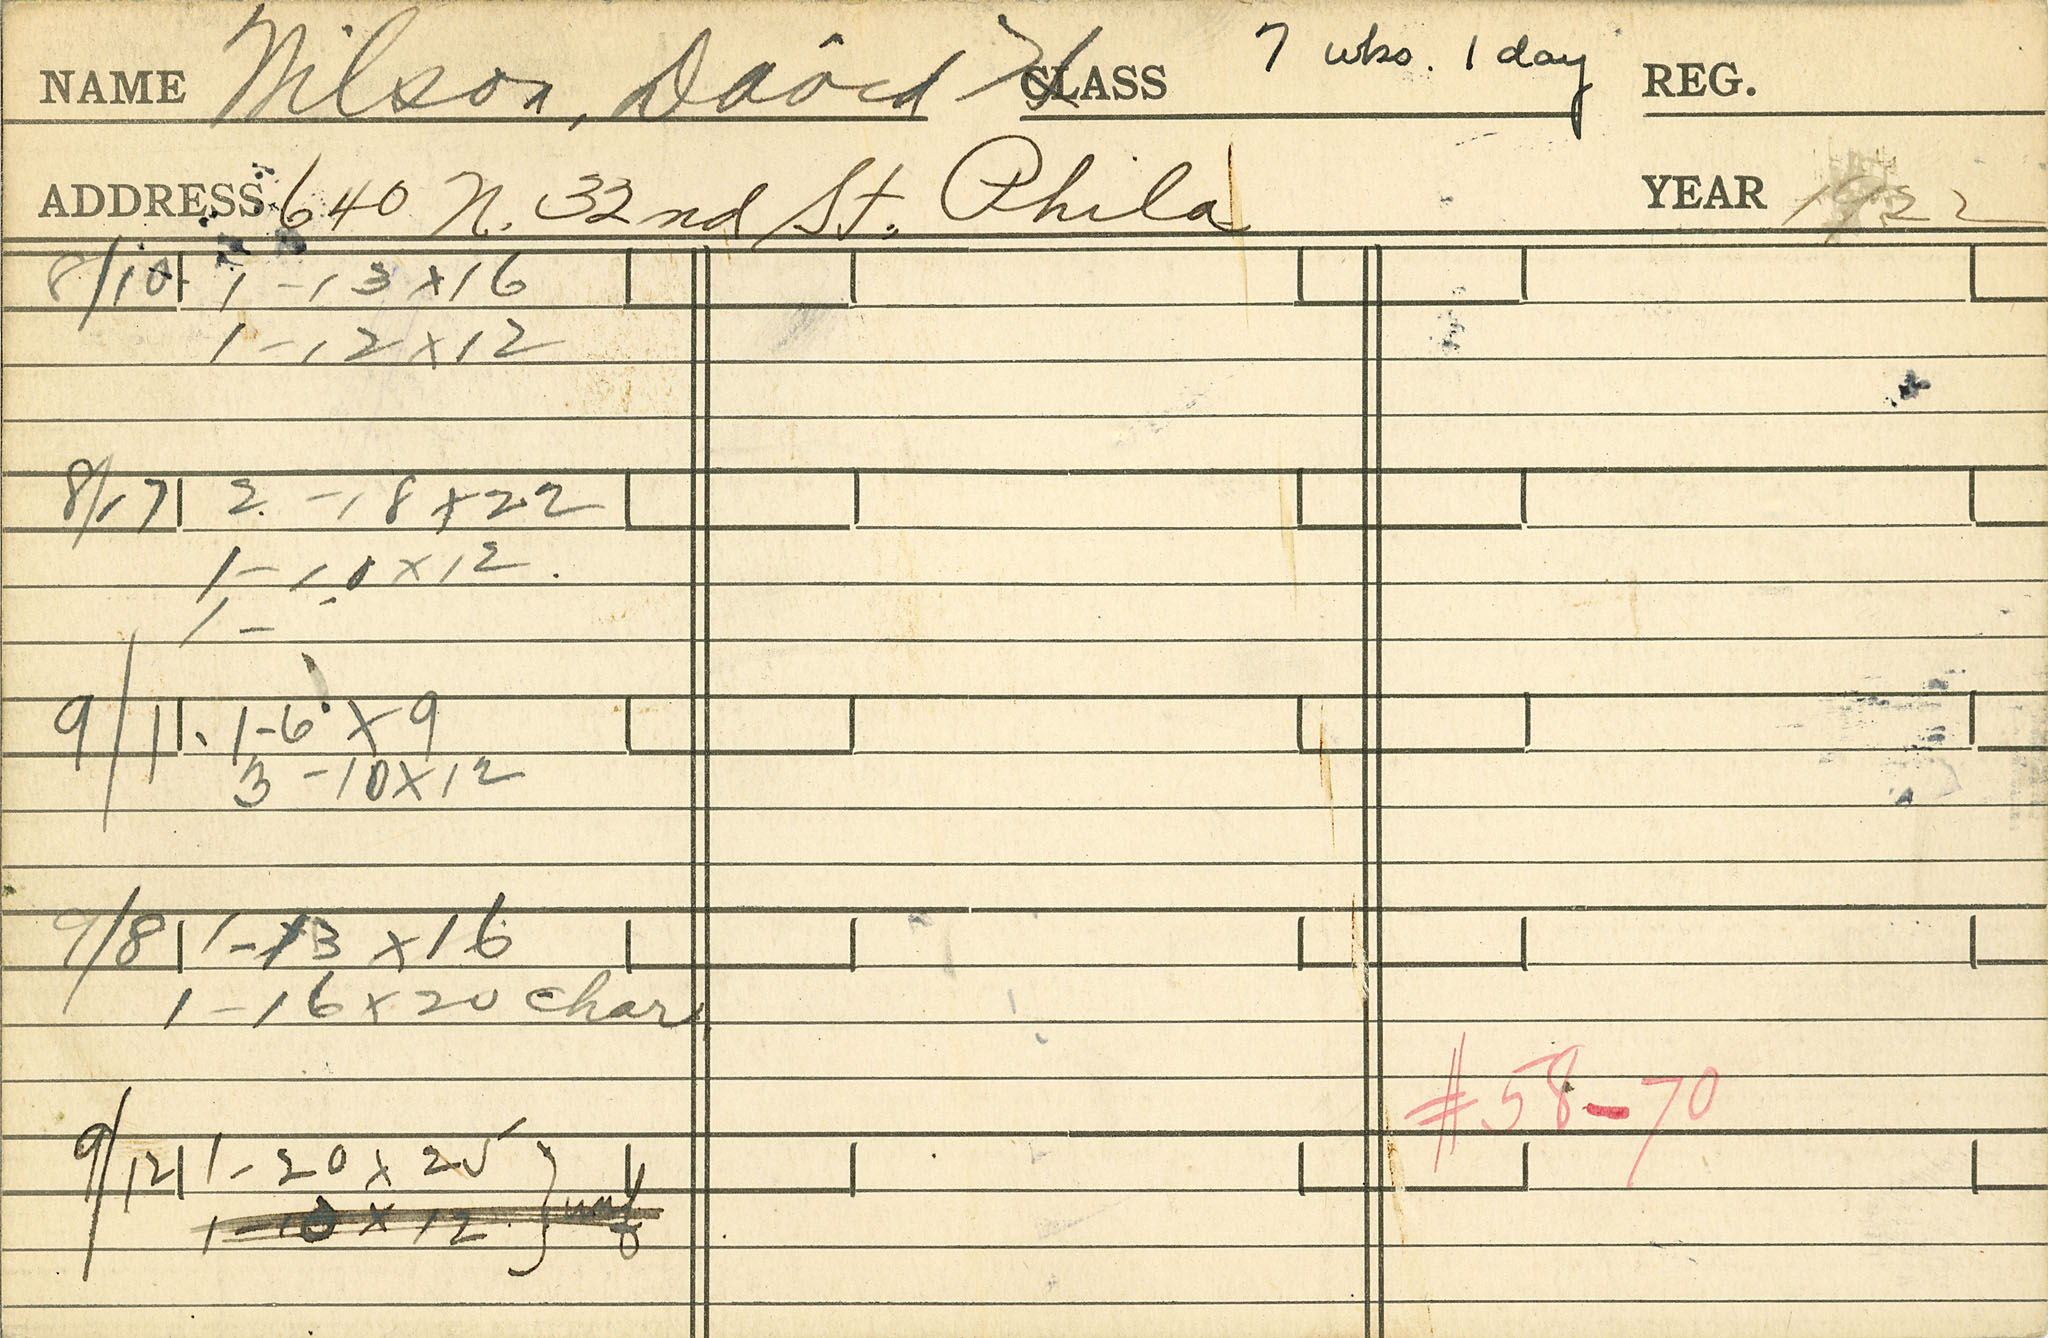 NAME Wilson, David H CLASS 7 wks. 1 day REG.
ADDRESS 640 N. 32nd St. Phila YEAR 1922
8/10 1-13x16
1-12x12
8/17 2-18x22
1-10x12.
1-
9/1 1-6x9
3-10x12
9/8 1-13x16
1-16x20 char
#58-70
9/12 1-20x25
1-10x12 } unf